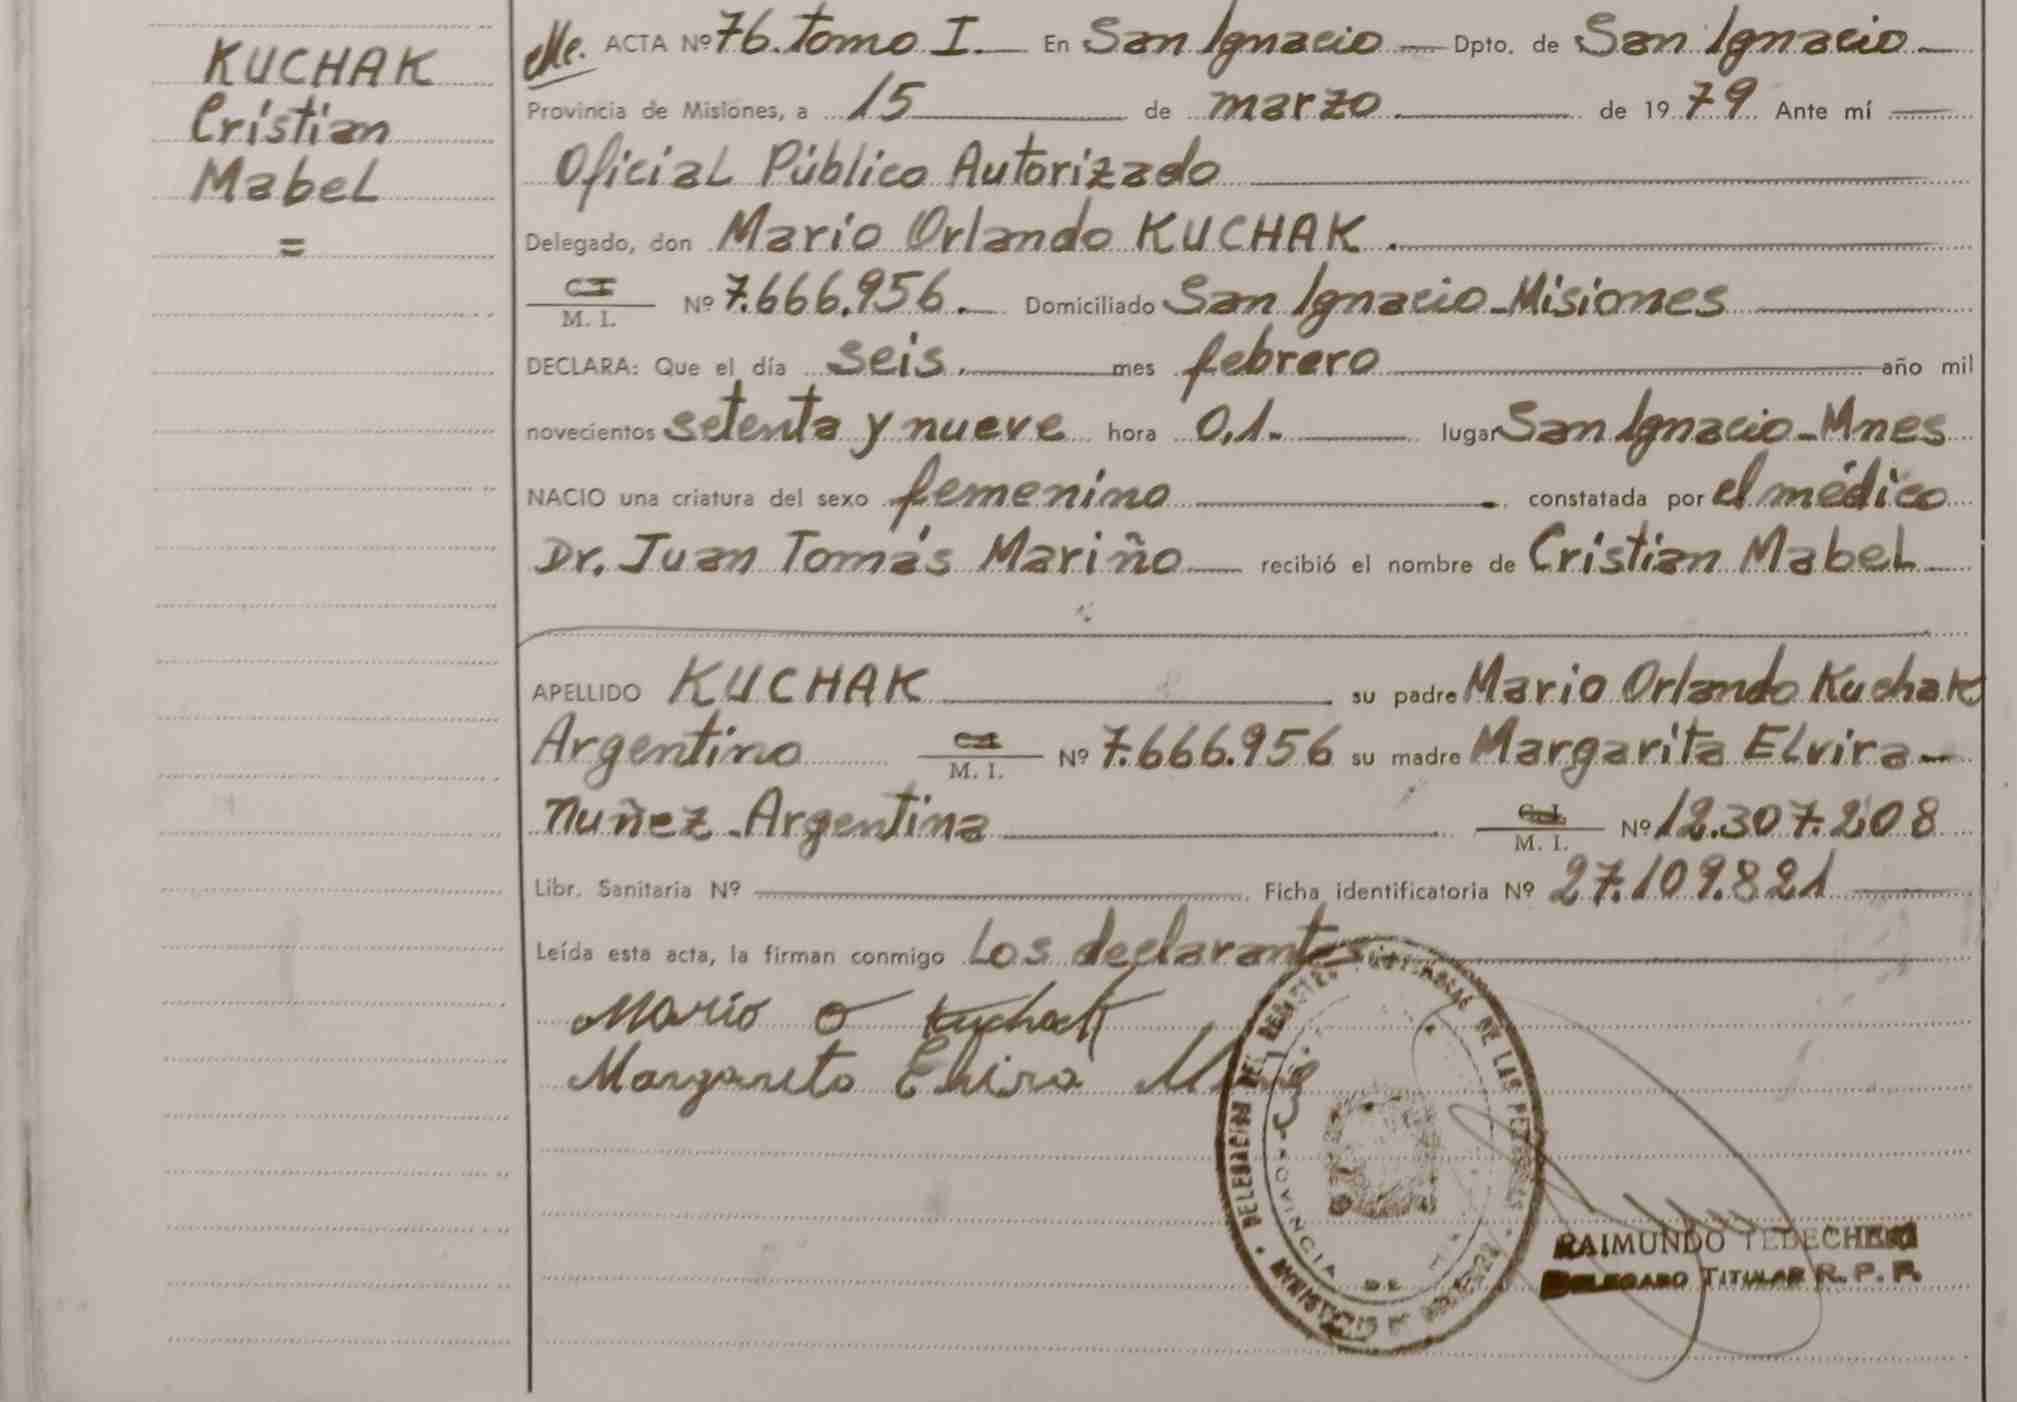 KUCHAK
Cristian
Mabel
=
ACTA Nº 76. tomo I. En San Ignacio Dpto. de San Ignacio
Provincia de Misiones, a 15 de marzo de 1979 Ante mí
Oficial Público Autorizado
Delegado, don Mario Orlando KUCHAK.
C I
M. I. Nº 7.666.956. Domiciliado San Ignacio-Misiones
DECLARA: Que el día seis. mes febrero año mil
novecientos setenta y nueve hora 0,1. lugar San Ignacio-Mnes
NACIO una criatura del sexo femenino constatada por el médico
Dr. Juan Tomás Mariño recibió el nombre de Cristian Mabel
APELLIDO KUCHAK su padre Mario Orlando Kuchak
Argentino M. I. Nº 7.666.956 su madre Margarita Elvira-
Nuñez-Argentina M. I. Nº 12.307.208
Libr. Sanitaria Nº Ficha identificatoria Nº 27.109.821
Leída esta acta, la firman conmigo Los declarantes
Mario O Kuchak
Margarita Elvira
DELEGACION DEL REGISTRO PROVINCIAL DE LAS PERSONAS
PROVINCIA DE
MINISTERIO DE
RAIMUNDO
DELEGADO TITULAR R. P. P.